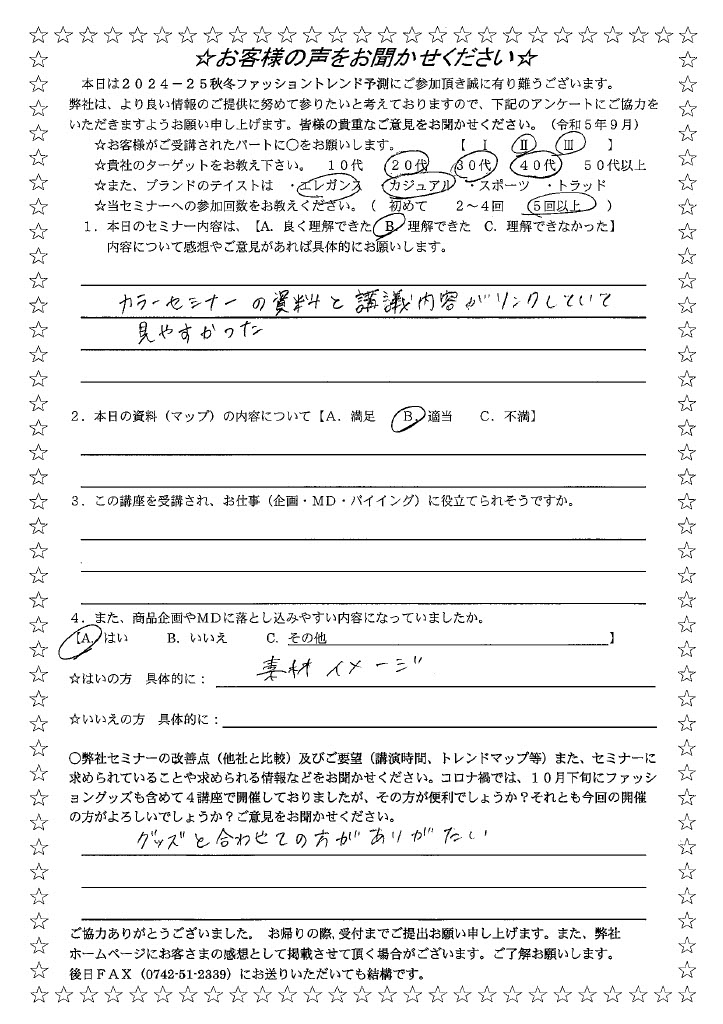 ☆お客様の声をお聞かせください☆
本日は2024－25秋冬ファッショントレンド予測にご参加頂き誠に有り難うございます。
弊社は、より良い情報のご提供に努めて参りたいと考えておりますので、下記のアンケートにご協力を
いただきますようお願い申し上げます。皆様の貴重なご意見をお聞かせください。（令和5年9月）
☆お客様がご受講されたパートに○をお願いします。　【　Ⅰ　Ⅱ　Ⅲ　】
☆貴社のターゲットをお教え下さい。　10代　20代　30代　40代　50代以上
☆また、ブランドのテイストは　・エレガンス　・カジュアル　・スポーツ　・トラッド
☆当セミナーへの参加回数をお教えください。（　初めて　2～4回　5回以上　）
1．本日のセミナー内容は、【A．良く理解できた　B．理解できた　C．理解できなかった】
内容について感想やご意見があれば具体的にお願いします。
カラーセミナーの資料と講議内容がリンクしていて
見やすかった
2．本日の資料（マップ）の内容について【A．満足　B．適当　C．不満】
3．この講座を受講され、お仕事（企画・MD・バイイング）に役立てられそうですか。
4．また、商品企画やMDに落とし込みやすい内容になっていましたか。
【A．はい　B．いいえ　C．その他　】
☆はいの方　具体的に：　素材イメージ
☆いいえの方　具体的に：
○弊社セミナーの改善点（他社と比較）及びご要望（講演時間、トレンドマップ等）また、セミナーに
求められていることや求められる情報などをお聞かせください。コロナ禍では、10月下旬にファッシ
ョングッズも含めて4講座で開催しておりましたが、その方が便利でしょうか？それとも今回の開催
の方がよろしいでしょうか？ご意見をお聞かせください。
グッズと合わせての方がありがたい
ご協力ありがとうございました。　お帰りの際、受付までご提出お願い申し上げます。また、弊社
ホームページにお客さまの感想として掲載させて頂く場合がございます。ご了解お願いします。
後日FAX（0742-51-2339）にお送りいただいても結構です。